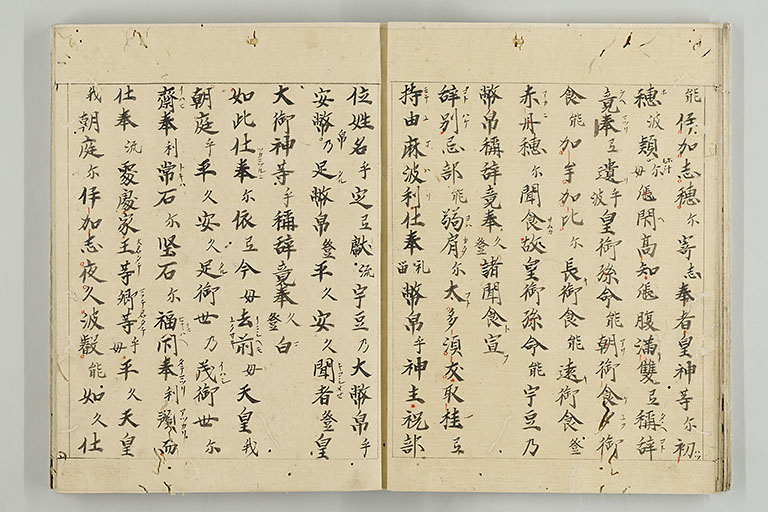 能伊加志穂尓寄志奉者皇神等尓初
穂波穎母𤭖閇高知𤭖腹満雙弖称辞
竟奉弖遺乎波皇御孫命能朝御食夕御
食能加牟加比尓長御食能遠御食登
赤丹穂尓聞食故皇御孫命能宇豆乃
幣帛称辞竟奉久登諸聞食宣
辞別忌部能弱肩尓太多須支取挂弖
持由麻波利仕奉礼留幣帛乎神主祝部
位姓名乎定弖献流宇豆乃大幣帛乎
安幣帛乃足幣帛登平久安久聞者登皇
大御神等乎称辞竟奉久登白
如此仕奉尓依弖今母去前母天皇我
朝庭乎平久安久足御世乃茂御世尓
齋奉利常石尓堅石尓福閇奉利預而
仕奉流處處家王等卿等乎母平久天皇
我朝庭尓伊加志夜久波叡能如久仕